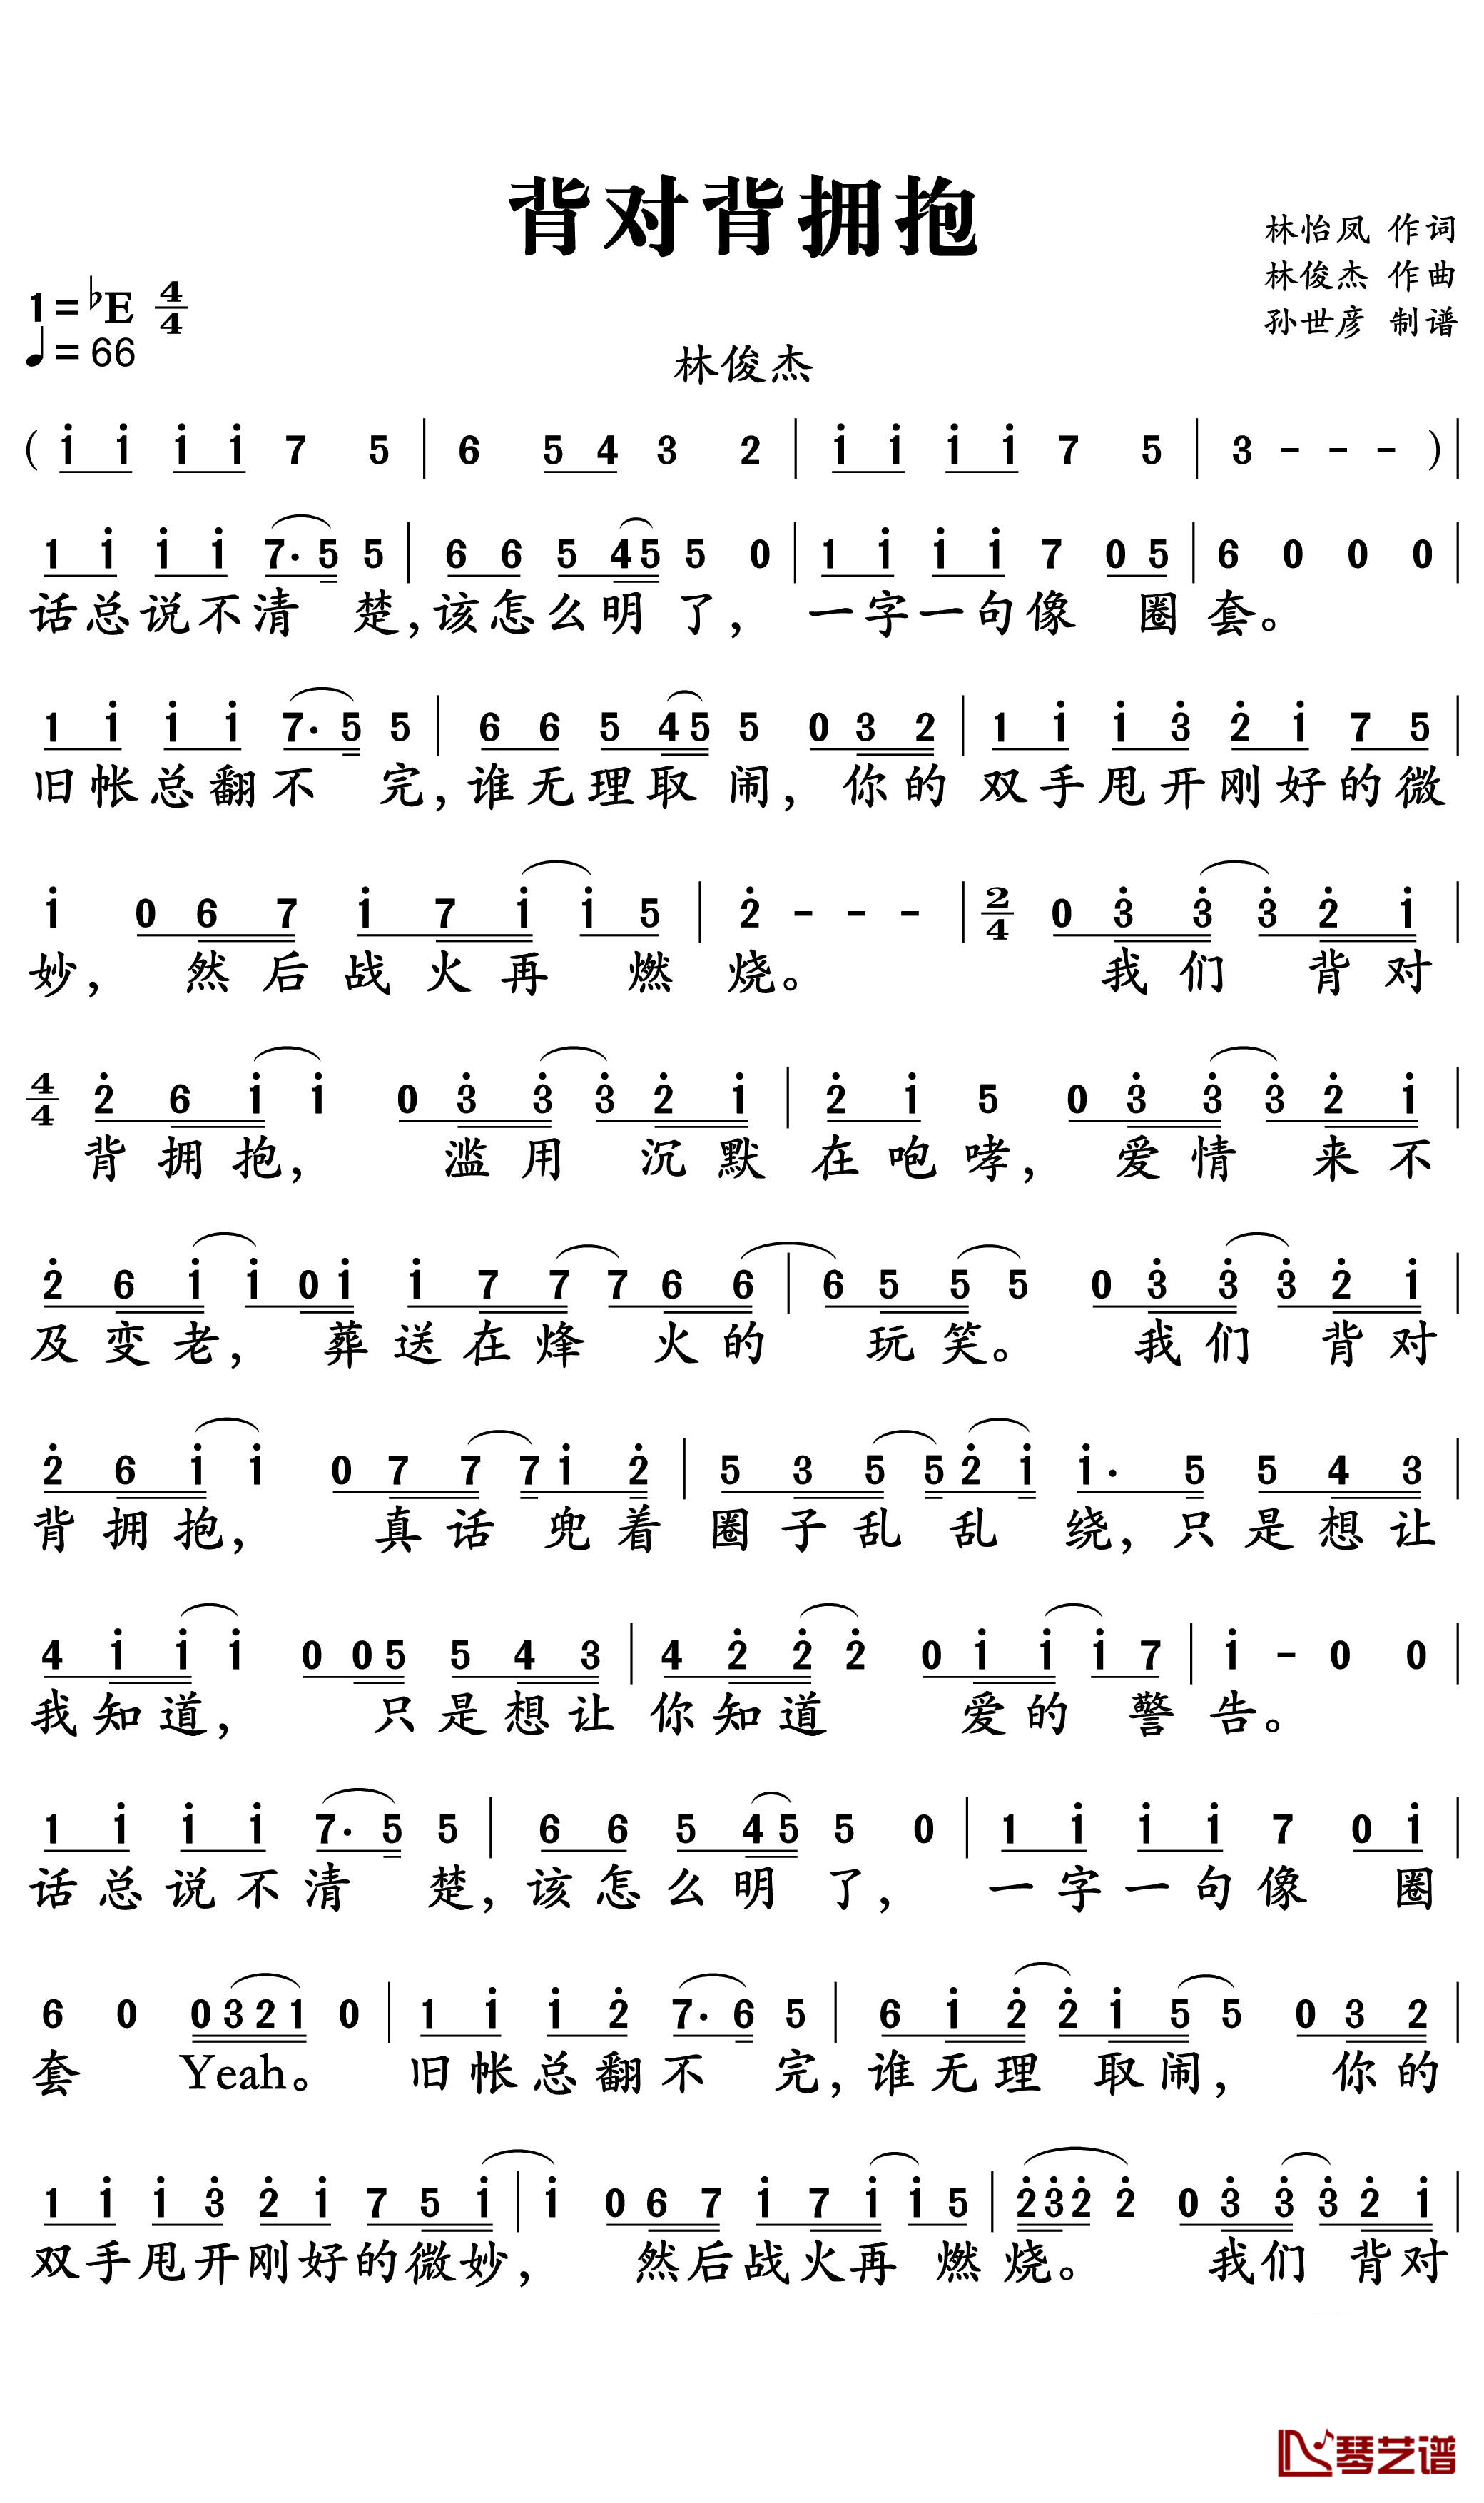 背对背拥抱
林怡凤 作词
林俊杰 作曲
孙世彦 制谱
1=♭E 4/4
♩=66
林俊杰
( i i i i 7 5 | 6 5 4 3 2 | i i i i 7 5 | 3 - - - ) |
1 i i i 7· 5 5 | 6 6 5 4 5 5 0 | 1 i i i 7 0 5 | 6 0 0 0 |
话总说不清 楚,该怎么明了, 一字一句像 圈套。
1 i i i 7· 5 5 | 6 6 5 4 5 5 0 3 2 | 1 i i 3̇ 2̇ i 7 5 |
旧帐总翻不 完,谁无理取闹, 你的双手甩开刚好的微
i 0 6 7 i 7 i i 5 | 2̇ - - - | 2/4 0 3̇ 3̇ 3̇ 2̇ i |
妙, 然后战火再 燃 烧。 我们 背对
4/4 2̇ 6 i i 0 3̇ 3̇ 3̇ 2̇ i | 2̇ i 5 0 3̇ 3̇ 3̇ 2̇ i |
背拥抱, 滥用 沉默在咆哮, 爱情 来不
2̇ 6 i i 0 i i 7 7 7 6 6 | 6 5 5 5 0 3̇ 3̇ 3̇ 2̇ i |
及变老, 葬送在烽 火的 玩笑。 我们 背对
2̇ 6 i i 0 7 7 7 i 2̇ | 5 3 5 5 2̇ i i· 5 5 4 3 |
背拥抱, 真话 兜着圈子乱 乱 绕,只是想让
4 i i i 0 0 5 5 4 3 | 4 2̇ 2̇ 2̇ 0 i i i 7 | i - 0 0 |
我知道, 只是想让你知道 爱的 警告。
1 i i i 7· 5 5 | 6 6 5 4 5 5 0 | 1 i i i 7 0 i |
话总说不清 楚,该怎么明了, 一字一句像 圈
6 0 0 3 2 1 0 | 1 i i 2̇ 7· 6 5 | 6 i 2̇ 2̇ i 5 5 0 3 2 |
套 Yeah。 旧帐总翻不 完,谁无理 取闹, 你的
1 i i 3̇ 2̇ i 7 5 i | i 0 6 7 i 7 i i 5 | 2̇ 3̇ 2̇ 2̇ 0 3̇ 3̇ 3̇ 2̇ i |
双手甩开刚好的微妙, 然后战火再 燃烧。 我们 背对
琴艺谱